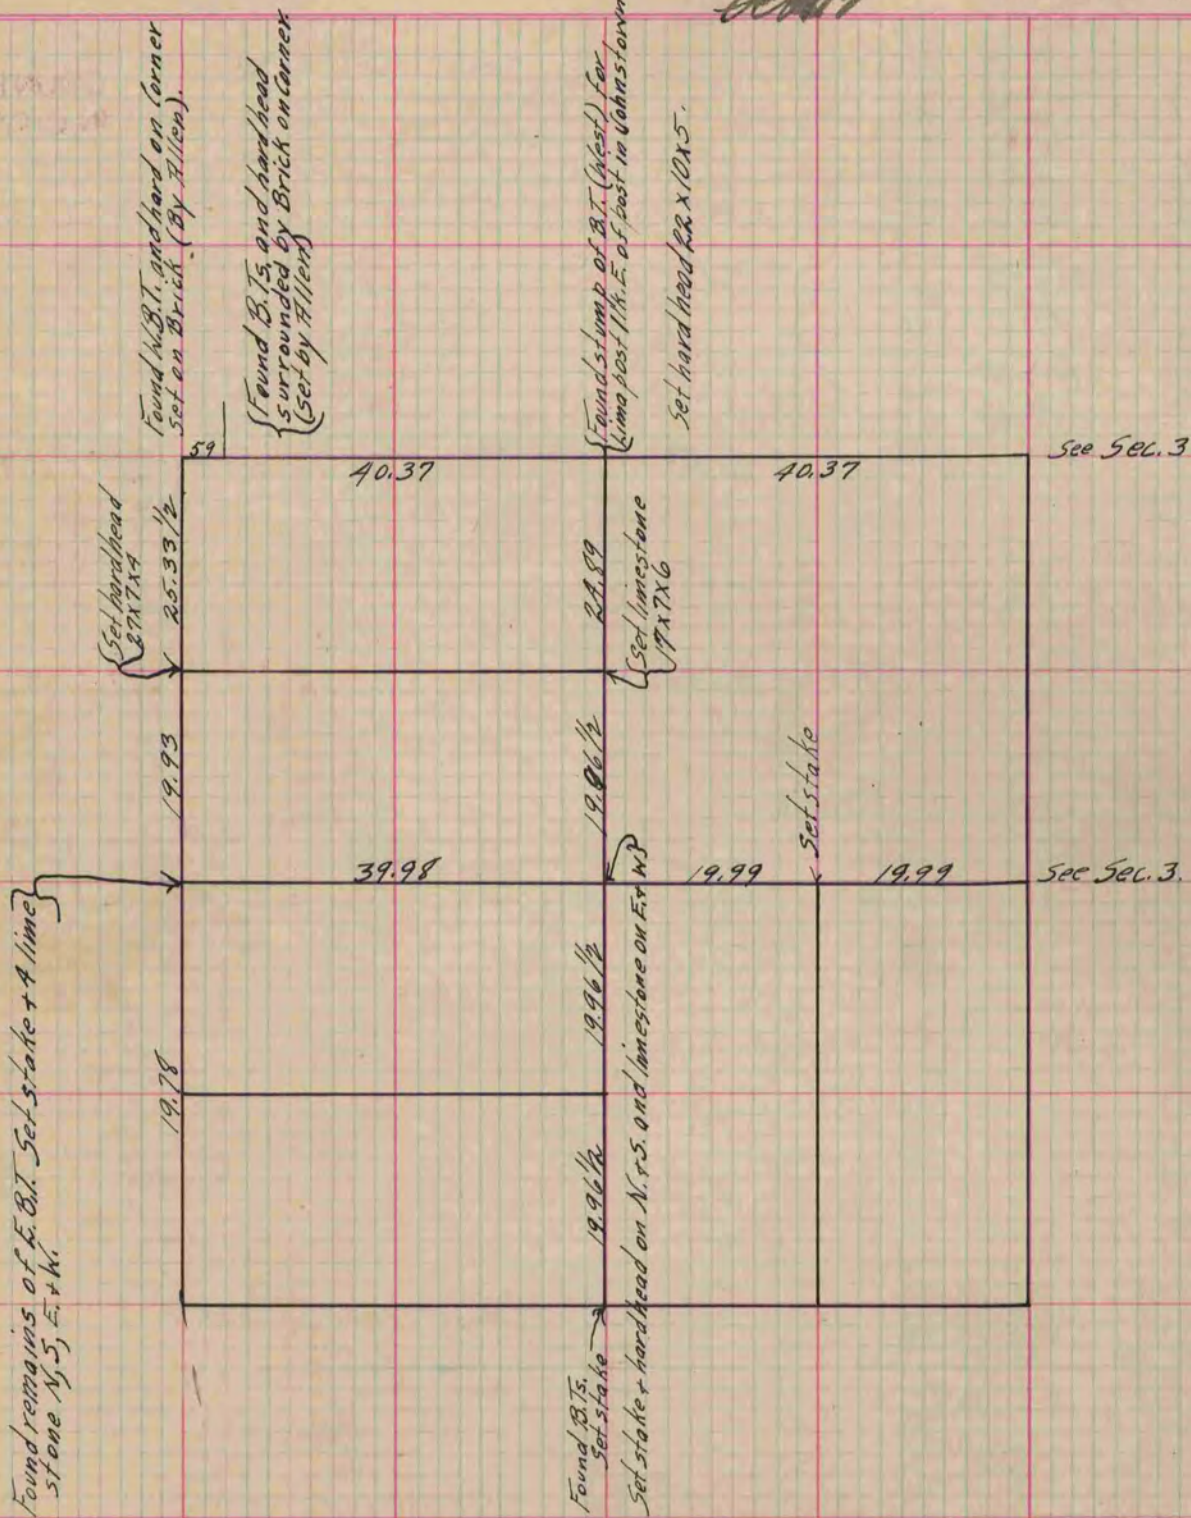 Found W.B.T. and hard on Corner
Set on Brick (By Allen).
Found B.Ts. and hard head
surrounded by Brick on Corner
(Set by Allen)
Found stump of B.T. (West) for
Lima post 1 lk. E. of post in Johnstown
Set hard head 22 x 10 x 5.
59
40.37
40.37
See Sec. 3
Set hardhead
27x7x4
25.33 1/2
24.89
Set limestone
17x7x6
19.93
19.96 1/2
Set stake
39.98
19.99
19.99
See Sec. 3.
Found remains of E.B.T. Set stake + 4 lime
stone N, S, E. + W.
19.78
19.96 1/2
19.96 1/2
Set stake + hardhead on N. + S. and limestone on E. + W.
Found B.Ts.
Set stake